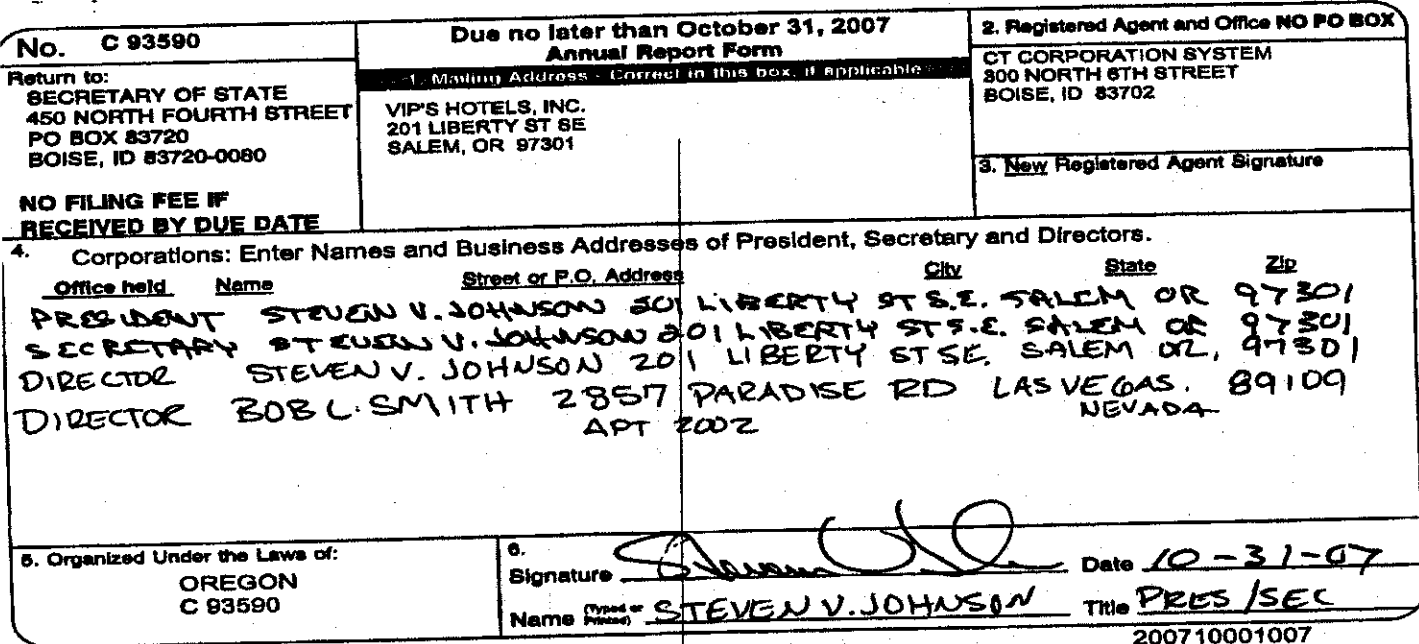 No. C 93590
Return to:
SECRETARY OF STATE
450 NORTH FOURTH STREET
PO BOX 83720
BOISE, ID 83720-0080
NO FILING FEE IF
RECEIVED BY DUE DATE
Due no later than October 31, 2007
Annual Report Form
1. Mailing Address - Correct in this box, if applicable
VIP'S HOTELS, INC.
201 LIBERTY ST SE
SALEM, OR 97301
2. Registered Agent and Office NO PO BOX
CT CORPORATION SYSTEM
300 NORTH 6TH STREET
BOISE, ID 83702
3. New Registered Agent Signature
4. Corporations: Enter Names and Business Addresses of President, Secretary and Directors.
Office held Name Street or P.O. Address City State Zip
PRESIDENT STEVEN V. JOHNSON 201 LIBERTY ST S.E. SALEM OR 97301
SECRETARY STEVEN V. JOHNSON 201 LIBERTY ST S.E. SALEM OR 97301
DIRECTOR STEVEN V. JOHNSON 201 LIBERTY ST SE. SALEM OR, 97301
DIRECTOR BOB L. SMITH 2857 PARADISE RD LAS VEGAS. 89109
APT 2002 NEVADA
5. Organized Under the Laws of:
OREGON
C 93590
6.
Signature Date 10-31-07
Name (Typed or Printed) STEVEN V. JOHNSON Title PRES/SEC
200710001007